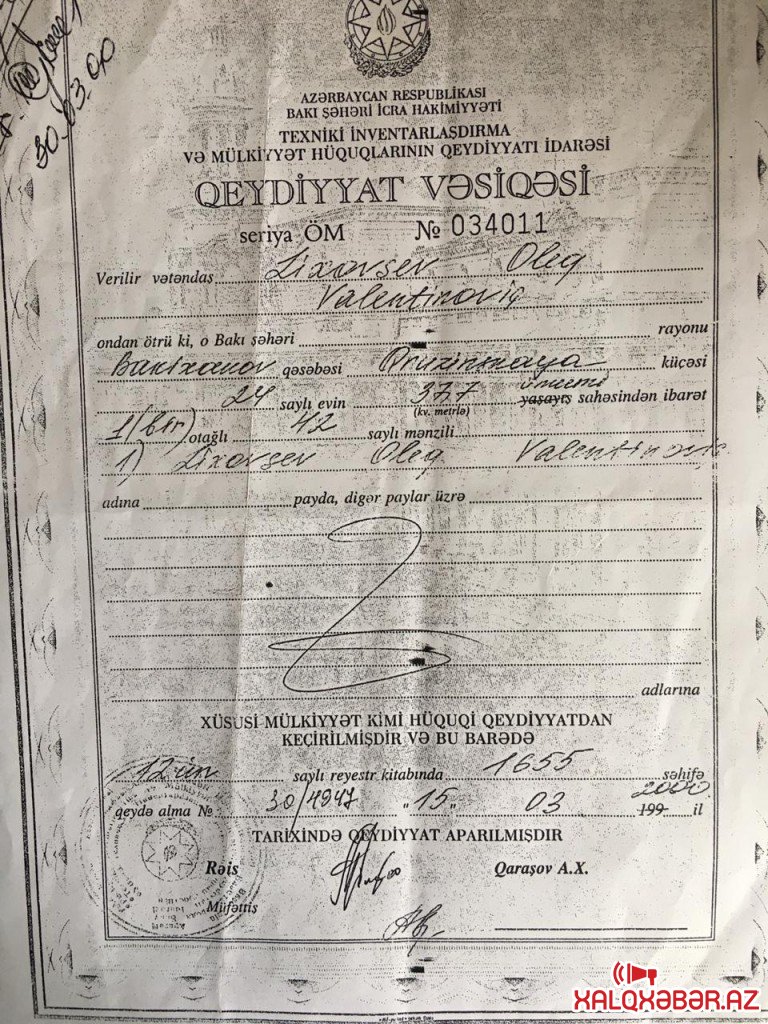 30.03.00
AZƏRBAYCAN RESPUBLİKASI
BAKI ŞƏHƏRİ İCRA HAKİMİYYƏTİ
TEXNİKİ İNVENTARLAŞDIRMA
VƏ MÜLKİYYƏT HÜQUQLARININ QEYDİYYATI İDARƏSİ
QEYDİYYAT VƏSİQƏSİ
seriya ÖM № 034011
Verilir vətəndaş Lixovşev Oleq
Valentinoviç
ondan ötrü ki, o Bakı şəhəri rayonu
Bakıxanov qəsəbəsi Qruzinskaya küçəsi
24 saylı evin 37,7 ümumi yaşayış sahəsindən ibarət
(kv. metrlə)
1(bir) otağlı 42 saylı mənzili
1) Lixovşev Oleq Valentinoviç
adına payda, digər paylar üzrə
adlarına
XÜSUSİ MÜLKİYYƏT KİMİ HÜQUQİ QEYDİYYATDAN
KEÇİRİLMİŞDİR VƏ BU BARƏDƏ
12 ün saylı reyestr kitabında 1655 səhifə
qeydə alma № 30/4947 "15" 03 199 2000 il
TARİXİNDƏ QEYDİYYAT APARILMIŞDIR
Rəis Qaraşov A.X.
Müfəttiş
XALQXƏBƏR.AZ